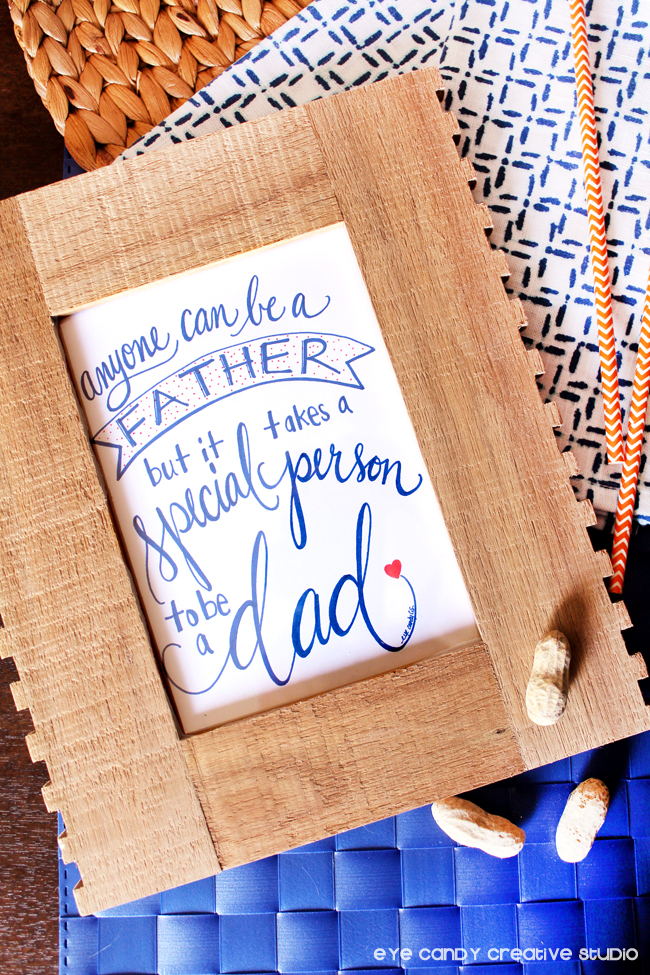 anyone can be a
FATHER
but it takes a
special person
to be
a dad
EYE CANDY CREATIVE STUDIO